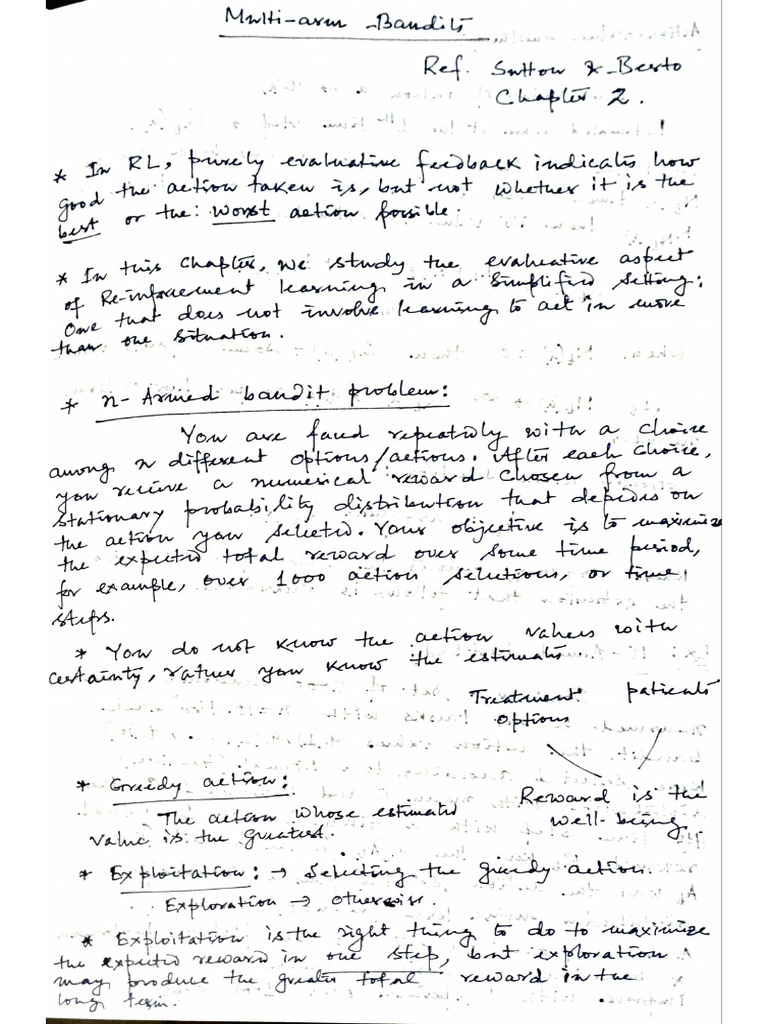 Multi-arm Bandits
Ref. Sutton & Berto
Chapter 2.
* In RL, purely evaluative feedback indicates how
good the action taken is, but not whether it is the
best or the worst action possible.
* In this chapter, we study the evaluative aspect
of Re-inforcement learning in a simplified setting:
One that does not involve learning to act in more
than one situation.
* n-Armed bandit problem:
You are faced repeatedly with a choice
among n different options/actions. After each choice,
you receive a numerical reward chosen from a
stationary probability distribution that depends on
the action you selected. Your objective is to maximize
the expected total reward over some time period,
for example, over 1000 action selections, or time
steps.
* You do not know the action values with
certainty, rather you know the estimates.
Treatment patients
options
* Greedy action: Reward is the
The action whose estimated well-being
value is the greatest.
* Exploitation: → Selecting the greedy action.
Exploration → otherwise.
* Exploitation is the right thing to do to maximize
the expected reward in one step, but exploration
may produce the greater total reward in the
long term.